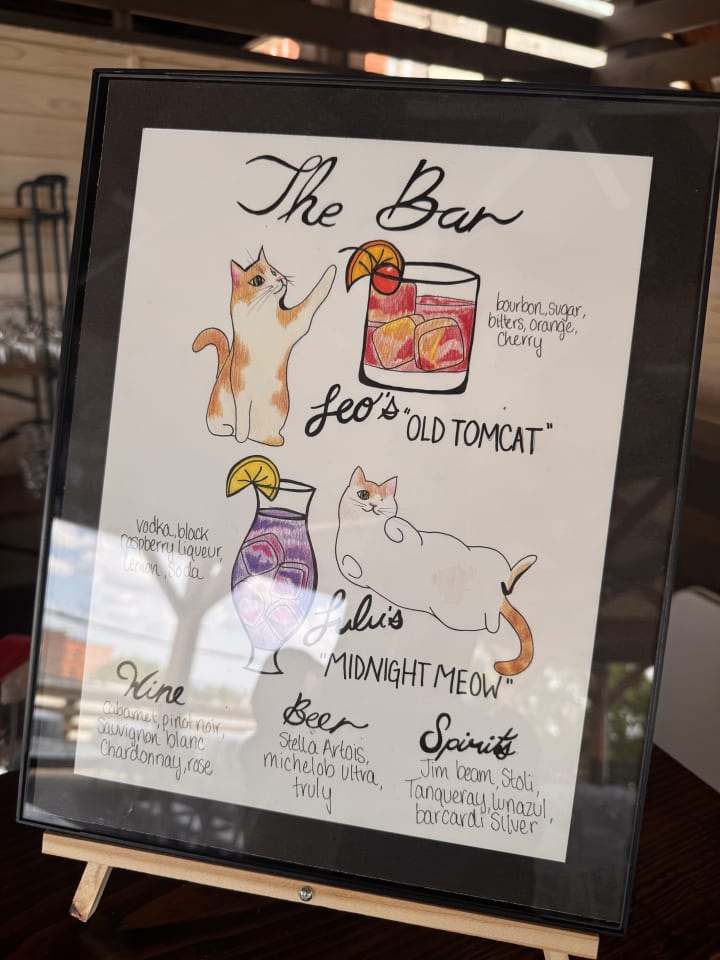 The Bar
bourbon, sugar,
bitters, orange,
cherry
Leo's "OLD TOMCAT"
vodka, black
raspberry liqueur,
lemon, soda
Lulu's
"MIDNIGHT MEOW"
Wine
Cabarnet, pinot noir,
Sauvignon blanc
Chardonnay, rose
Beer
Stella Artois,
michelob ultra,
truly
Spirits
Jim beam, Stoli,
Tanqueray, lunazul,
barcardi Silver